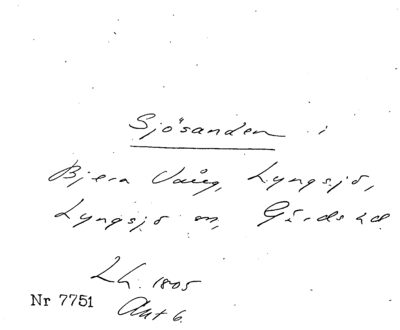 Sjösanden i
Bjera Vång, Lyngsjö,
Lyngsjö sn, Gärds hd
Lh. 1805
Nr 7751
Akt 6.